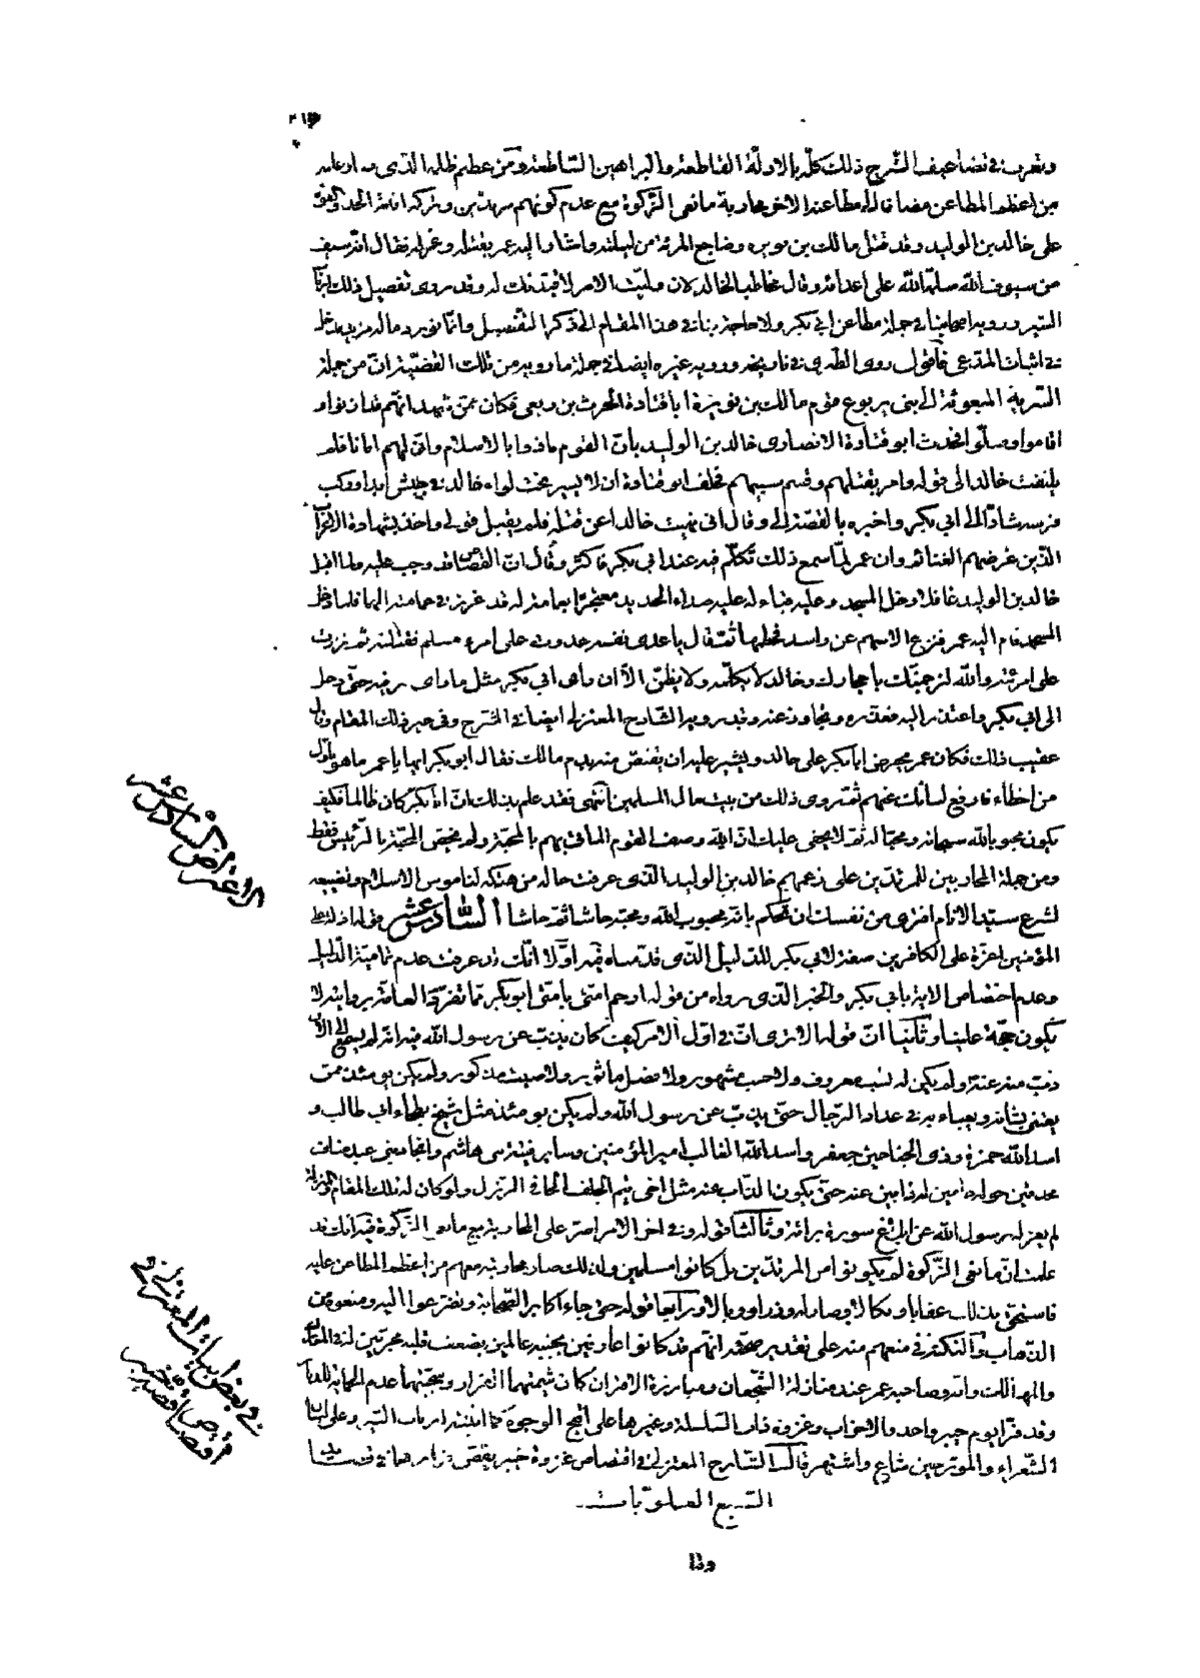 وتعرف في تضاعيف الشرح ذلك كلّه بالادلّة القاطعة والبراهين السّاطعة ومن عظم ظلمه الذي
من اعظم المطاعن مضافا الى مطاعنه الاخر محاربة مانعى الزّكوة مع عدم كونهم مرتدّين وتركه اقامة الحد
على خالد بن الوليد وقد قتل مالك بن نويره وضاجع امرئته من ليلته واشار اليه عمر بقتله وعزله فقال انّه سيف
من سيوف اللّه سلّه اللّه على اعدائه وقال مخاطبا لخالد لان وليت الامر لاقيدنّك له وقد روى تفصيل ذلك ارباب
السّير ورويه اصحابنا في جملة مطاعن ابي بكر ولا حاجة بنا في هذا المقام الى ذكر التفصيل وانّما نورد ما له مزيد مدخل
في اثبات المدّعى فأقول روى الطّبرى في تاريخه ورويه غيره ايضا في جملة ما رويه من تلك القضيّة انّ من جملة
السّرية المبعوثة الى بني يربوع قوم مالك بن نويرة ابا قتادة الحرث بن ربعى فكان ممّن شهد انّهم قد
اقاموا وصلّوا فحدث ابو قتادة الانصارى خالد بن الوليد بأنّ القوم نادوا بالاسلام وانّ لهم امانا فلم
يلتفت خالد الى قوله وامر بقتلهم وقسم سبيهم فحلف ابو قتادة ان لا يسير تحت لواء خالد في جيش ابدا وركب
فرسه شادّا الى ابي بكر واخبره بالقصّة وقال انى نهيت خالدا عن قتله فلم يقبل قولى واخذ بشهادة الاعراب
الذين غرضهم الغنائم وان عمر لمّا سمع ذلك تكلّم فيه عند ابي بكر فأكثر وقال انّ القصاص قد وجب عليه ولما اقبل
خالد بن الوليد غافلا دخل المسجد وعليه قباء له عليه صداء الحديد معتجرا بعمامة له قد غرز في عمامته اسهما فلما دخل
المسجد قام اليه عمر فنزع الاسهم عن راسه فحطمها ثمّ قال يا عدى نفسه عدوت على امرء مسلم فقتلته ثم نزوت
على امرئته واللّه لنرجمنّك باحجارك وخالد لا يكلّمه ولا يظنّ الاّ ان رأى ابي بكر مثل ما راى عمر فيه حتّى دخل
الى ابي بكر واعتذر اليه فعذره وتجاوز عنه وقد رويه الشّارح المعتزلى ايضا في الشرح وفي خبر ذلك المقام وقال
عقيب ذلك فكان عمر يحرض ابا بكر على خالد ويشير عليه ان يقتصّ منه بدم مالك فقال ابو بكر ايها يا عمر ما هو باوّل
من اخطاء فارفع لسانك عنهم ثم ودى ذلك من بيت مال المسلمين انتهى فقد علم بذلك انّ ابا بكر كان ظالما فكيف
يكون محبوبا للّه سبحانه ومحبّا له ثمّ لا يخفى عليك انّ اللّه وصف القوم الماتى بهم بالمحبّة ولم يختص المحبّة بالرّئيس فقط
ومن جملة المحاربين للمرتدّين على زعمهم خالد بن الوليد الذى عرفت حاله من هتكه لناموس الاسلام وتضييعه
لشرع سيّد الانام افترى من نفسك ان تحكم بانّه محبوب اللّه ومحبّه حاشا ثمّ حاشا السّادس عشر قوله اذلة على
المؤمنين اعزّة على الكافرين صفة لابي بكر للدّليل الذى قدّمناه فيه اوّلا انّك قد عرفت عدم تماميّة الدّليل
وعدم اختصاص الاية بابي بكر والخبر الذى رواه من قوله ارحم امتى بامتى ابو بكر ممّا تفرّد العامّة بروايته لا
يكون حجّة علينا وثانيا انّ قوله الا ترى انّ في اوّل الامر كيف كان يذبّ عن رسول اللّه فيه انّه لم يسمع الى الان
ذبّ منه عنه ولم يكن له نسب معروف ولا حسب مشهور ولا فضل ماثور ولا صيت مذكور ولم يكن يومئذ ممّن
يعتنى بشأنه ويعباء به في عداد الرّجال حتّى يذبّ عن رسول اللّه ولم يكن يومئذ مثل شيخ بطحاء ابي طالب و
اسد اللّه حمزة وذى الجناحين جعفر واسد اللّه الغالب امير المؤمنين وساير فتية بنى هاشم وانجاد بنى عبد مناف
محدقين حوله حامين له ذابين عنه حتّى يكون الذّاب عنه مثل اخى تيم الجلف الجافى الرّذل ولو كان له ذلك المقام
لم يعزله رسول اللّه عن ابلاغ سورة برائة وثالثا قوله وفي اخر الامر اصرّ على المحاربة مع مانعى الزّكوة فيه انّك قد
علمت انّ مانعى الزّكوة لم يكونوا من المرتدّين بل كانوا مسلمين ولذلك صار محاربته معهم من اعظم المطاعن عليه
فاستحقّ بذلك عقابا ونكالا وصار له وزرا ووبالا ورابعا قوله حتى جاء اكابر الصّحابة وتضرعوا اليه ومنعوه من
الذّهاب والنكتة في منعهم منه على تقدير صحّته انّهم قد كانوا عارفين بجبنه عالمين بضعف قلبه مجرّبين له في
والمهالك وانّه وصاحبه عمر عند منازلة الشّجعان ومبارزة الاقران كان شيمتهما الفرار وسجيّتهما عدم
وقد فرّا يوم خيبر واحد والاحزاب وغزوة ذات السّلسلة وغيرها على اقبح الوجوه كما اثبته ارباب السّير وعلى
الشّعراء والمورّخين شاع واشتهر قال الشّارح المعتزلى في اقتصاص غزوة خيبر
السّبع العلويّات
الاعتراض السّادس عشر
في بعض ابيات المعتزلى في
اقتصاص قصّة خيبر